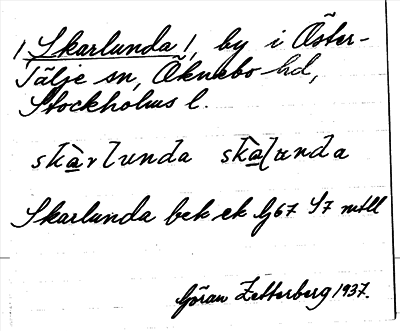 / Skarlunda /, by i Öster-
Tälje sn, Öknebo hd,
Stockholms l.
skàrlunda skàlunda
Skarlunda bek ek G67 S7 mtll
Göran Zetterberg 1937.